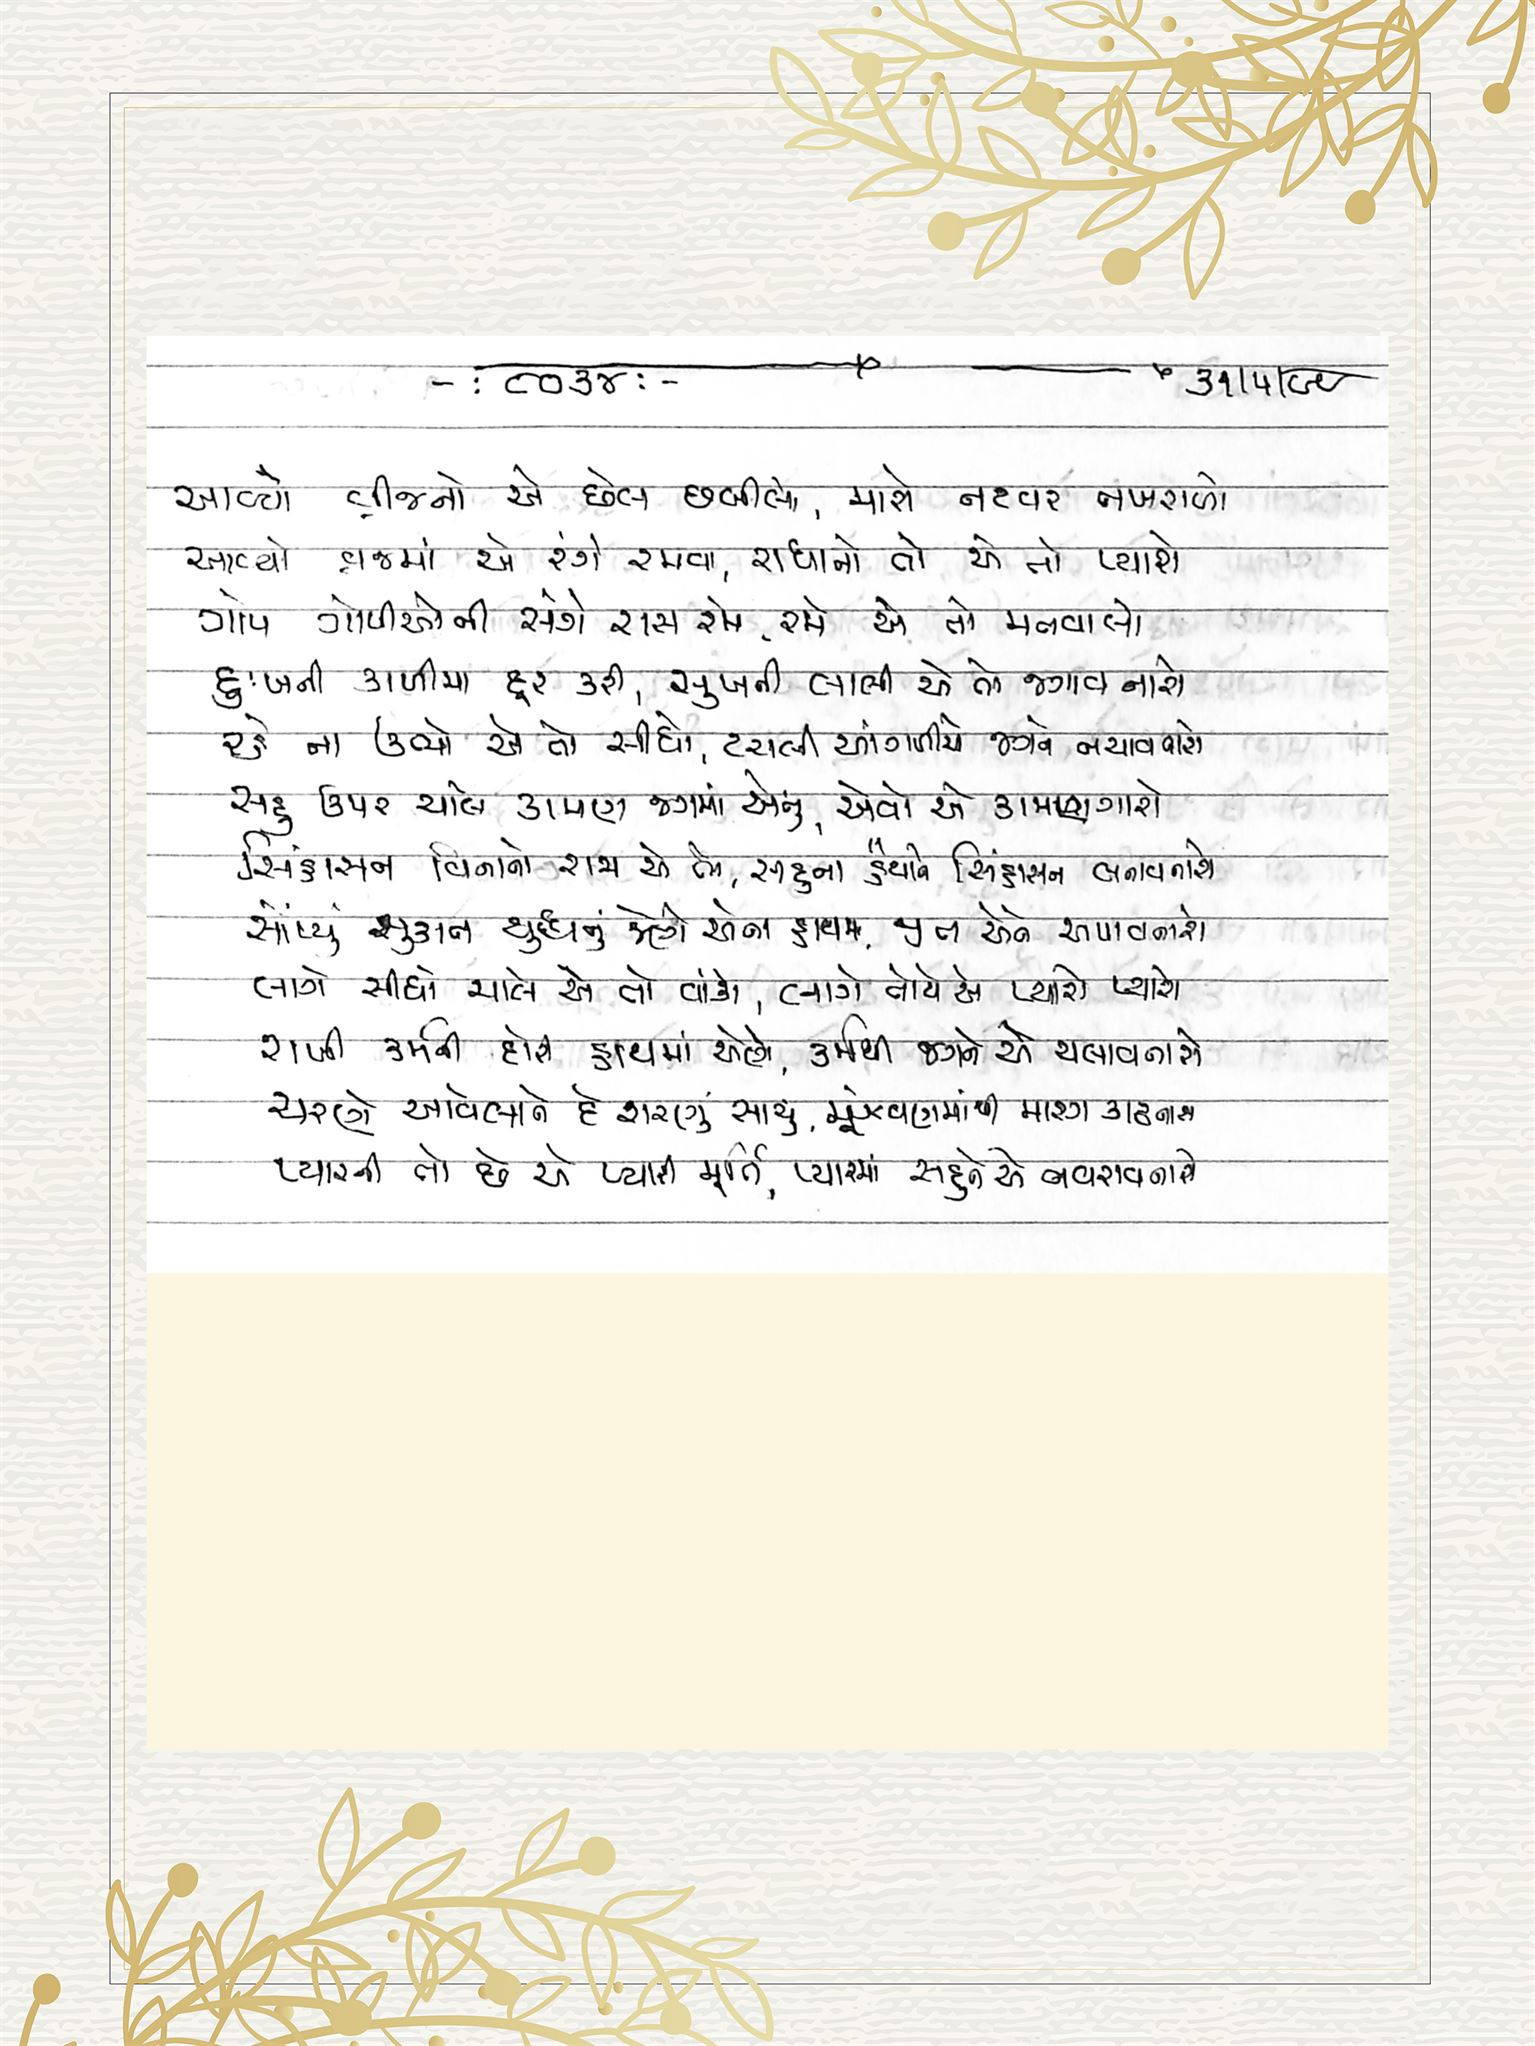 -: ૮૦૩૪ :- ૩૧/૫/૯૯
આવ્યો વ્રીજનો એ છેલ છબીલો, મારો નટવર નખરાળો
આવ્યો વ્રજમાં એ રંગે રમવા, રાધાનો તો એ તો પ્યારો
ગોપ ગોપીઓની સંગે રાસ રમે, રમે એ તો મનવાલો
દુઃખની કાળીમા દૂર કરી, સુખની લાલી એ તો જગાવનારો
રહે ના ઊભો એ તો સીધો, ટચલી આંગળીયે જગને નચાવનારો
સહુ ઉપર ચાલે કામણ જગમાં એનું, એવો એ કામણગારો
સિંહાસન વિનાનો રાજા એ તો, સહુના હૈયાને સિંહાસન બનાવનારો
સોંપ્યું સુકાન યુદ્ધનું જેણે એના હાથમાં, જીત એને અપાવનારો
લાગે સીધો ચાલે એ તો વાંકો, લાગે તોયે એ પ્યારો પ્યારો
રાખી કર્મની દોરી હાથમાં એણે, કર્મથી જગને એ ચલાવનારો
ચરણે આવેલાને દે શરણું સાચું, મૂંઝવણમાંથી મારગ કાઢનારો
પ્યારની તો છે એ પ્યારી મૂર્તિ, પ્યારમાં સહુને એ નવરાવનારો